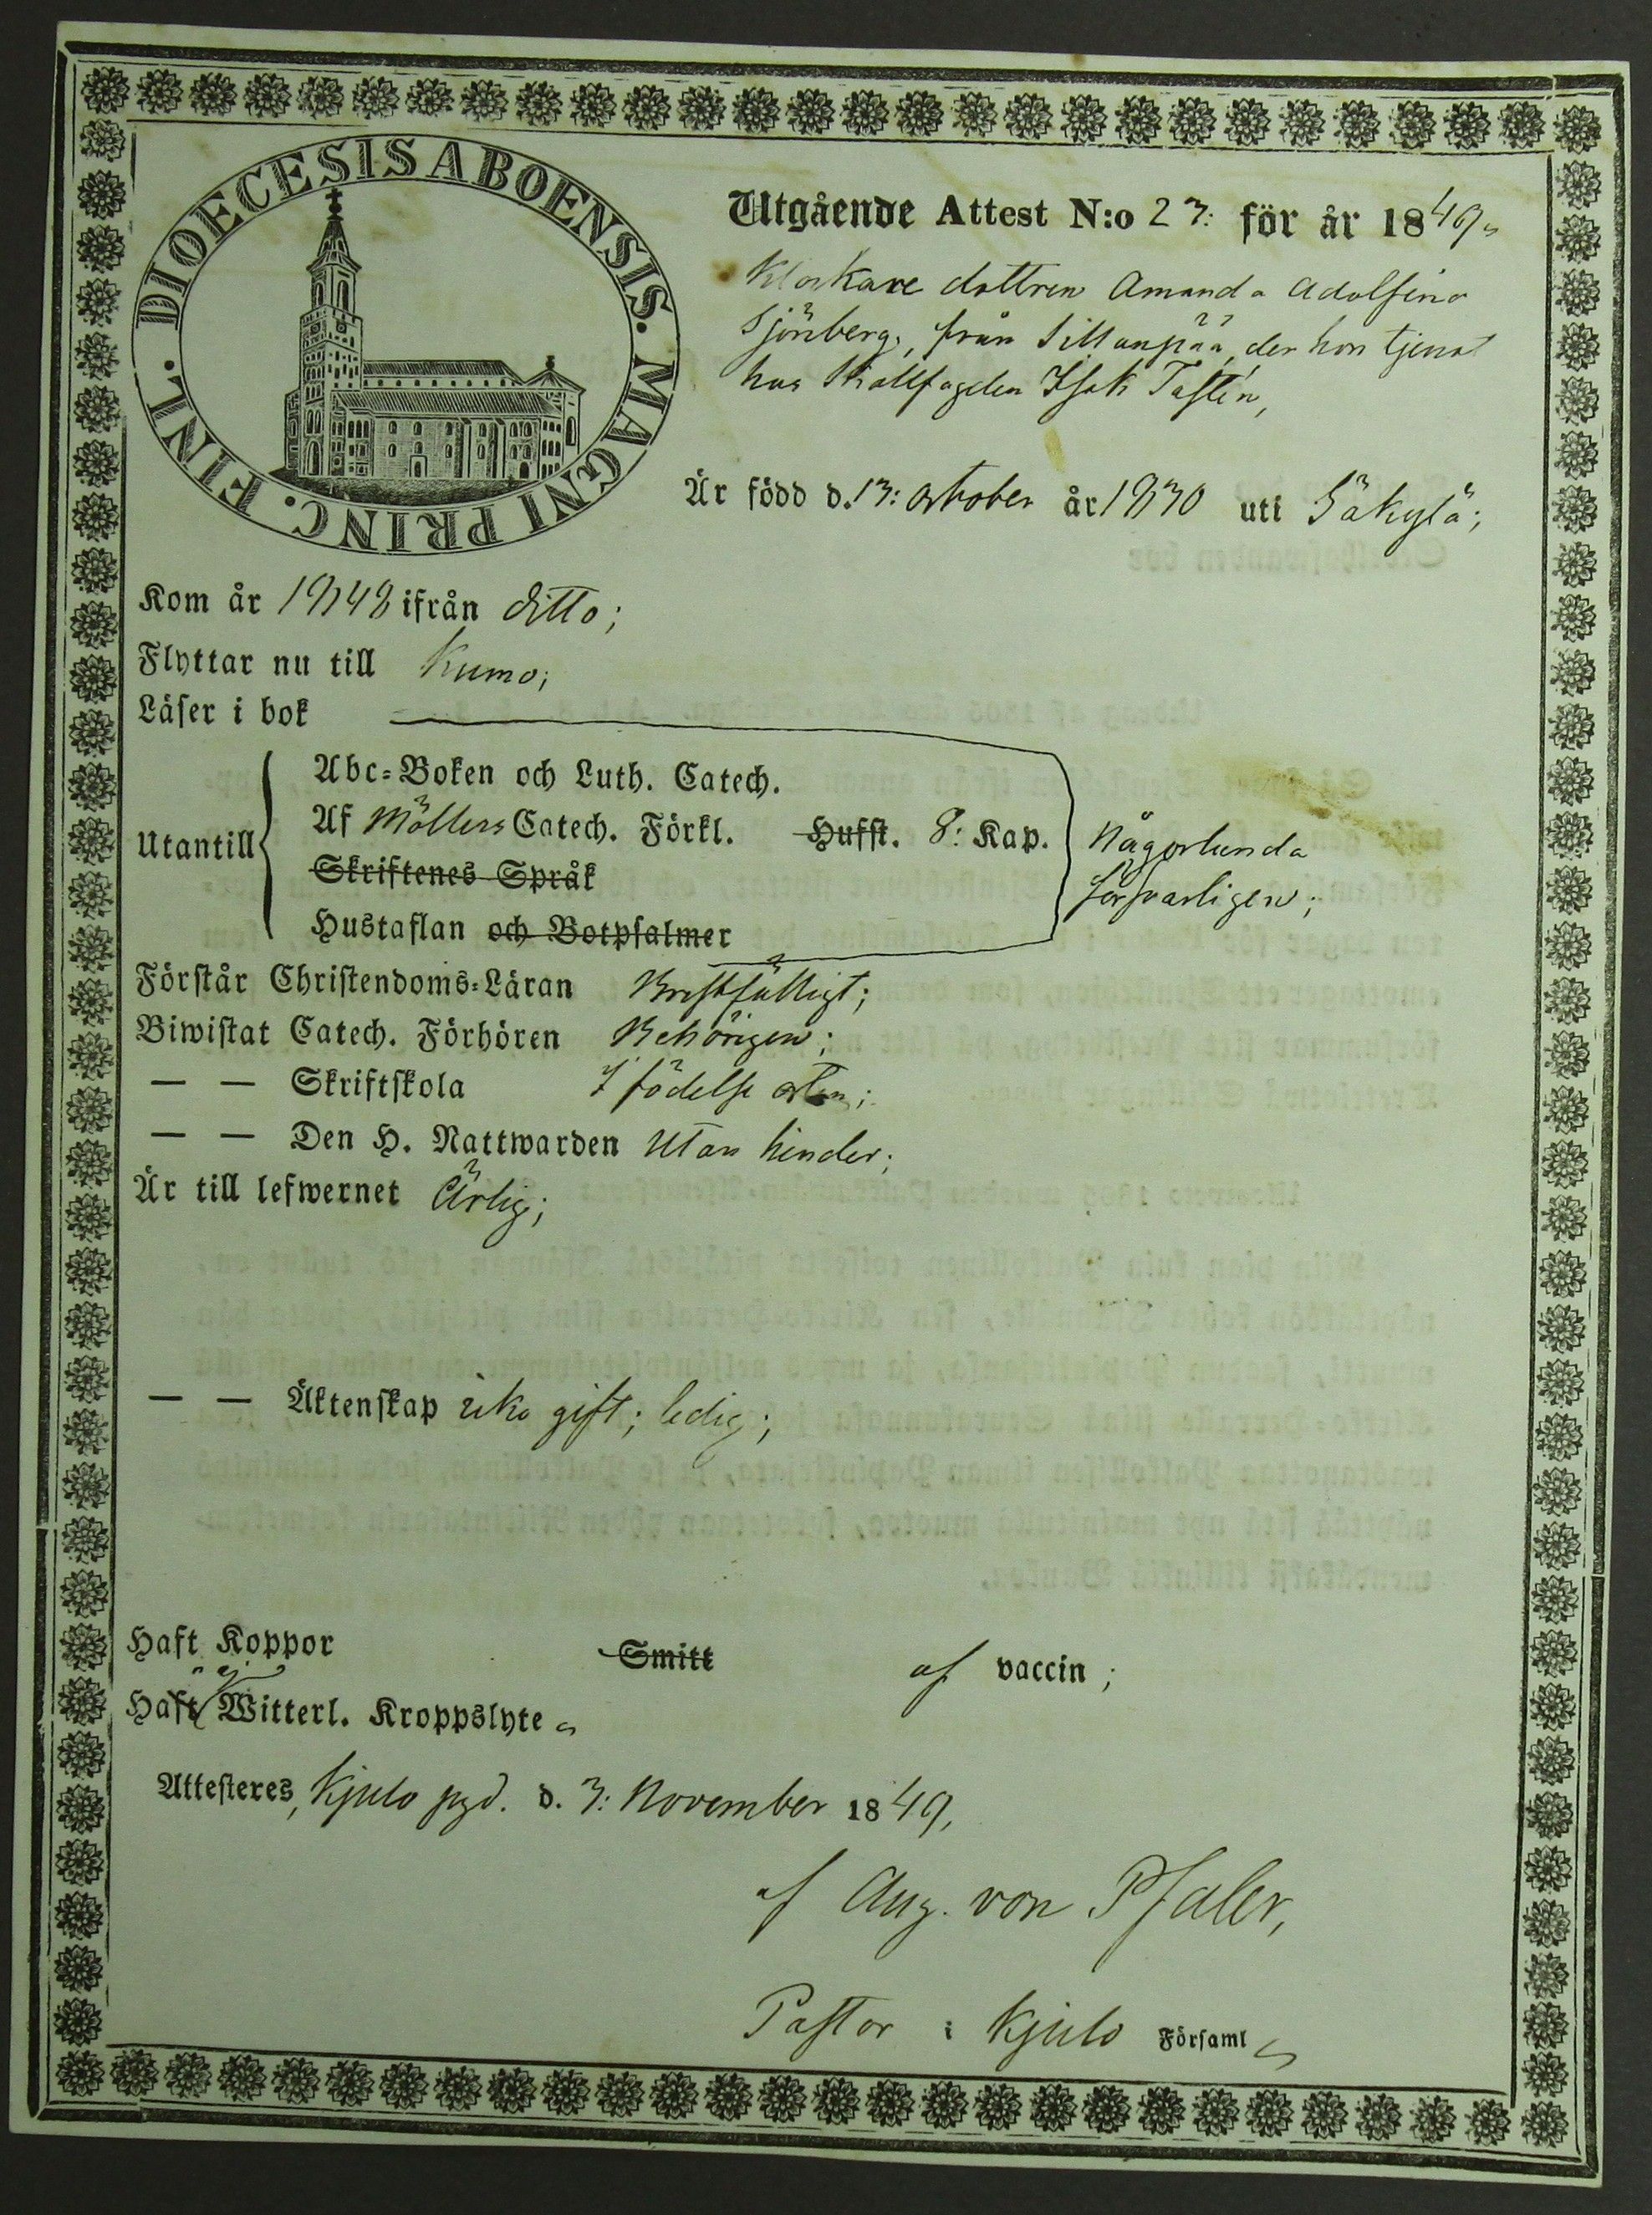 DIOECESIS ABOENSIS. MAGNI PRINC. FINL.
Utgående Attest N:o 23: för år 1849.
Klockare dottren Amanda Adolfina
Sjönberg, från Sillanpää, der hon tjenat
hos Skallfogden Isak Tastén,
Är född d. 13: october år 1830 uti Säkylä;
Kom år 1848 ifrån ditto;
Flyttar nu till Kumo;
Läser i bok
Utantill
Abc-Boken och Luth. Catech.
Af Möllers Catech. Förkl. Hufst. 8: Kap.
Skriftenes Språk
Hustaflan och Botpsalmer
Någorlunda
försvarligen;
Förstår Christendoms-Läran Bristfälligt;
Biwistat Catech. Förhören Behörigen;
— — Skriftskola I födelse orten;
— — Den H. Nattwarden utan hinder;
Är till lefwernet Ärlig;
— — Äktenskap icke gift; ledig;
Haft Koppor Smitt af vaccin;
Haft ej Witterl. Kroppslyte
Attesteres, Kjulo pgd. d. 3: November 1849,
af Aug. von Pfaler,
Pastor i Kjulo Församl